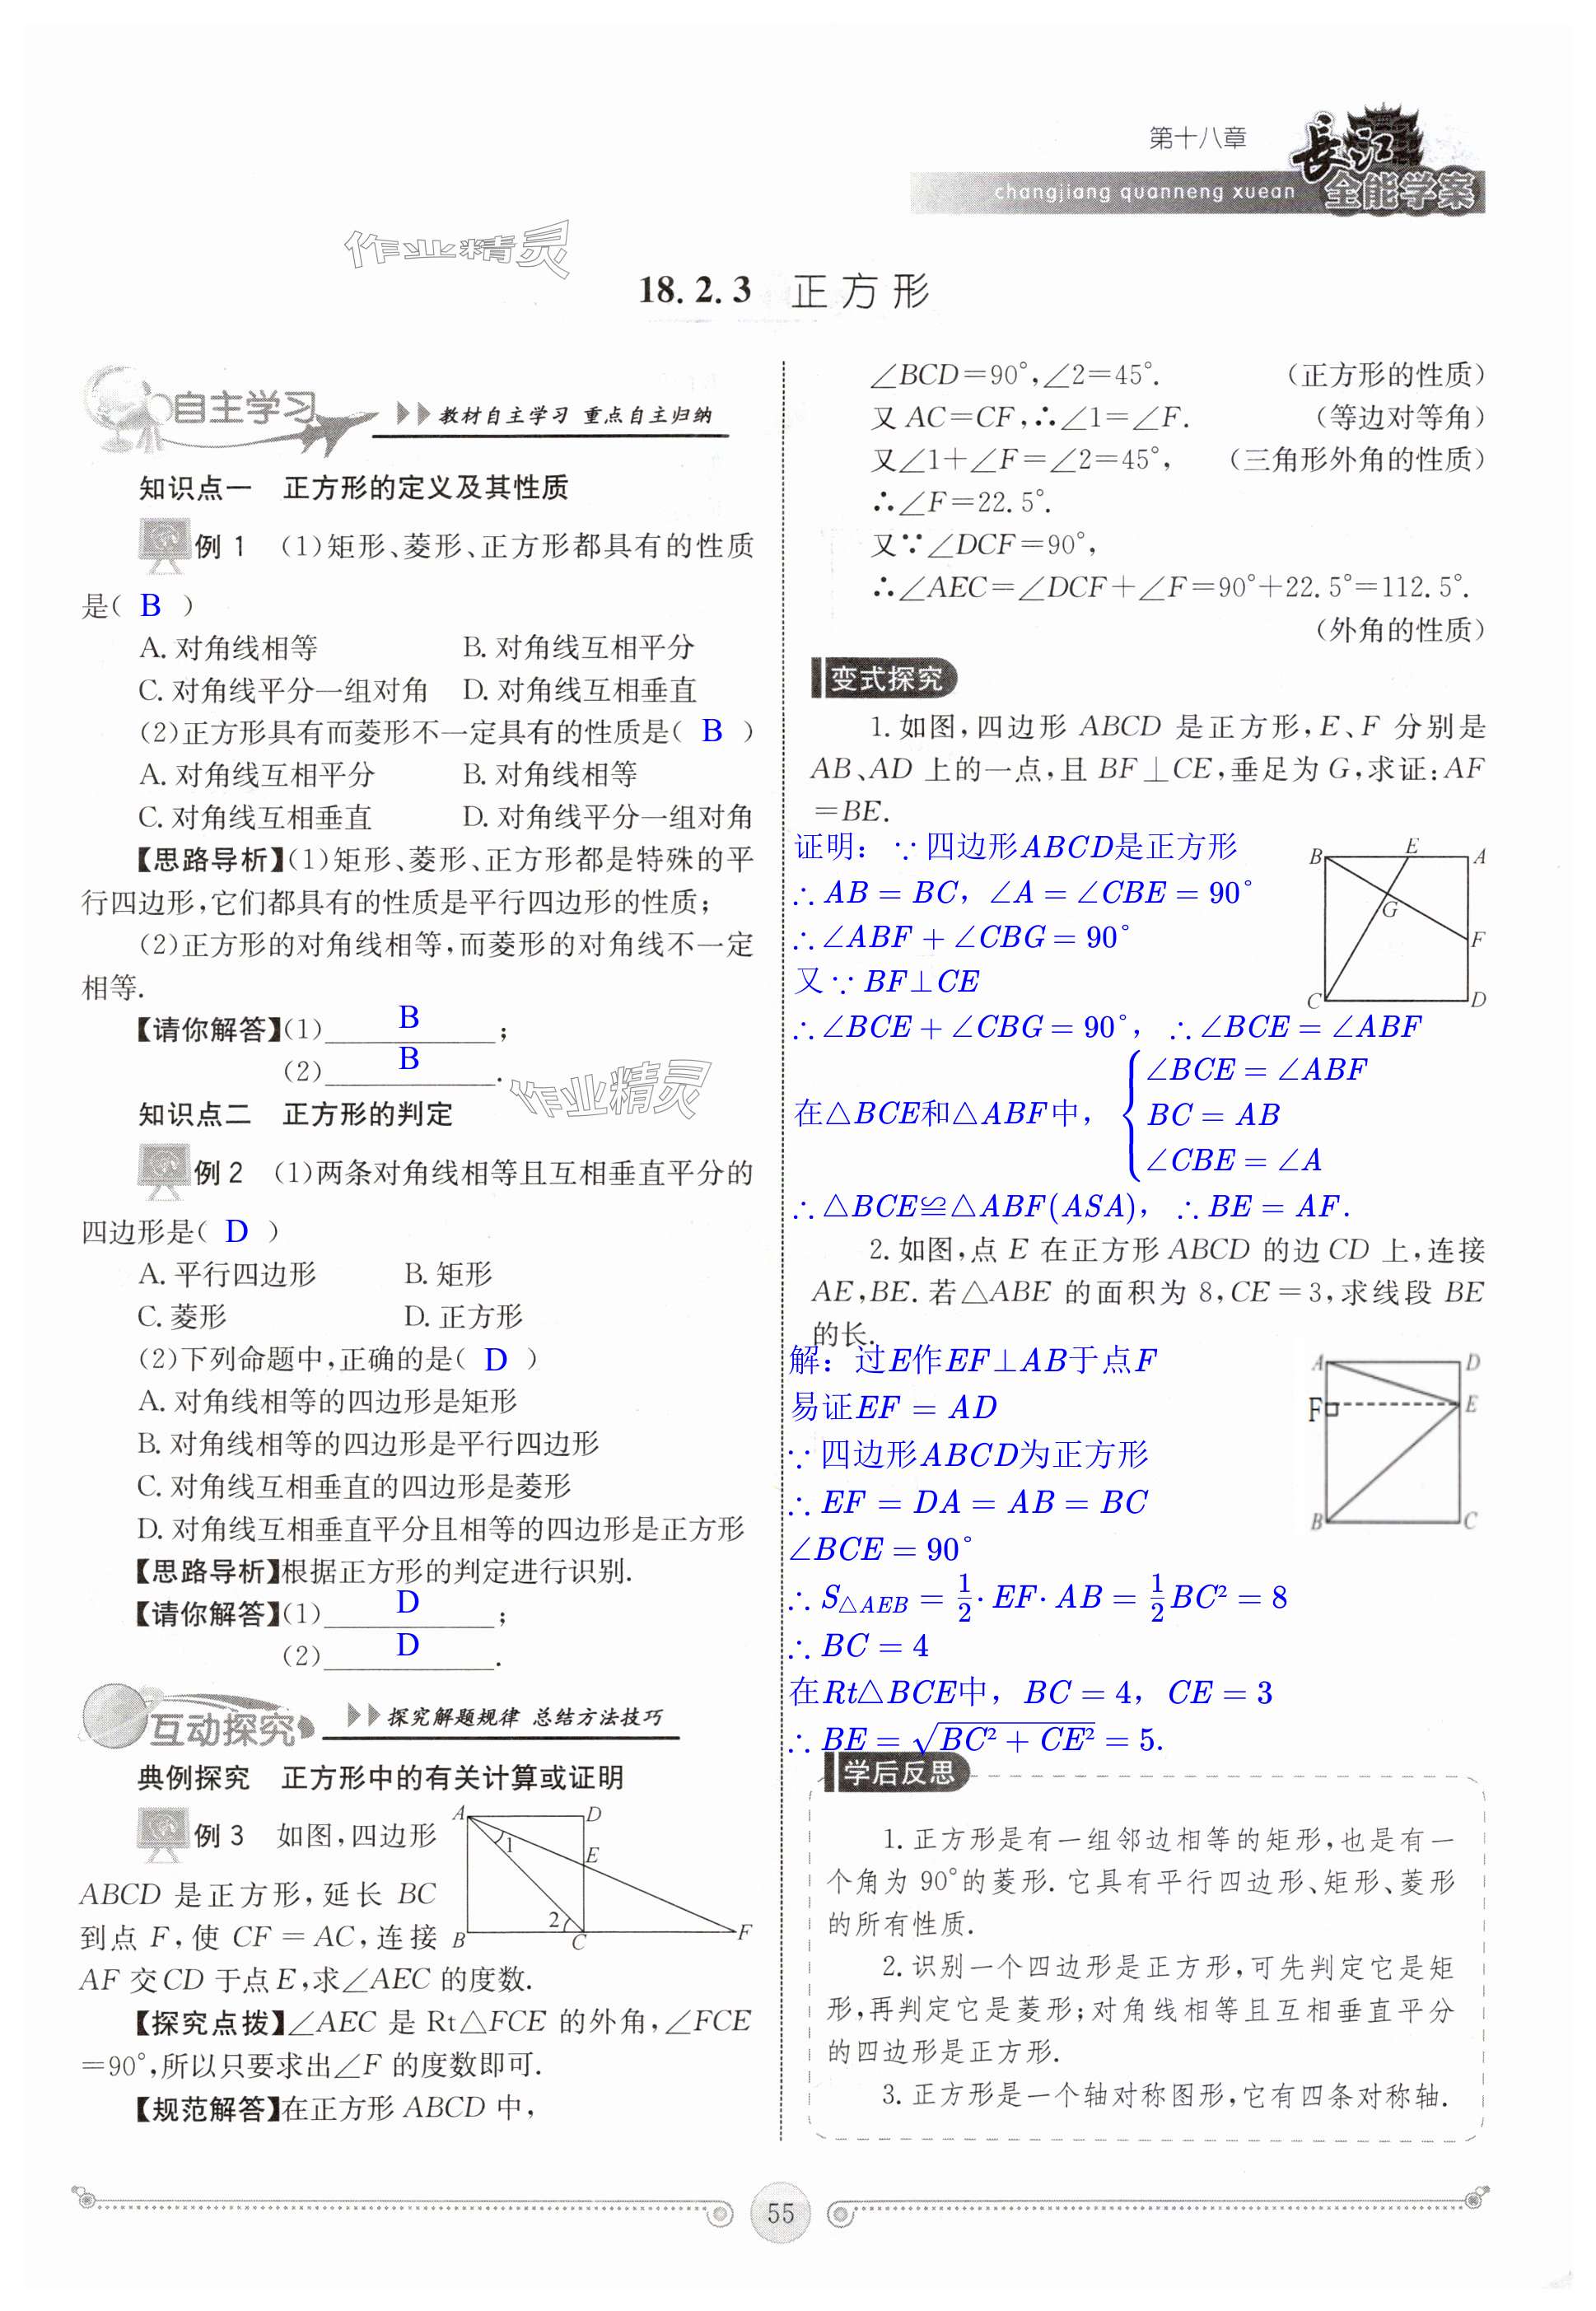 第十八章
長江
changjiang quanneng xuean
全能学案
作业精灵
18.2.3 正方形
自主学习 教材自主学习 重点自主归纳
知识点一 正方形的定义及其性质
例1 (1)矩形、菱形、正方形都具有的性质
是( B )
A.对角线相等 B.对角线互相平分
C.对角线平分一组对角 D.对角线互相垂直
(2)正方形具有而菱形不一定具有的性质是( B )
A.对角线互相平分 B.对角线相等
C.对角线互相垂直 D.对角线平分一组对角
【思路导析】(1)矩形、菱形、正方形都是特殊的平
行四边形,它们都具有的性质是平行四边形的性质;
(2)正方形的对角线相等,而菱形的对角线不一定
相等.
【请你解答】(1) B ;
(2) B .
作业精灵
知识点二 正方形的判定
例2 (1)两条对角线相等且互相垂直平分的
四边形是( D )
A.平行四边形 B.矩形
C.菱形 D.正方形
(2)下列命题中,正确的是( D )
A.对角线相等的四边形是矩形
B.对角线相等的四边形是平行四边形
C.对角线互相垂直的四边形是菱形
D.对角线互相垂直平分且相等的四边形是正方形
【思路导析】根据正方形的判定进行识别.
【请你解答】(1) D ;
(2) D .
互动探究 探究解题规律 总结方法技巧
典例探究 正方形中的有关计算或证明
例3 如图,四边形
ABCD 是正方形,延长 BC
到点 F,使 CF=AC,连接
AF 交CD 于点E,求∠AEC 的度数.
A D 1 E 2 B C F
【探究点拨】∠AEC 是 Rt△FCE 的外角,∠FCE
=90°,所以只要求出∠F 的度数即可.
【规范解答】在正方形 ABCD 中,
∠BCD=90°,∠2=45°. (正方形的性质)
又 AC=CF,∴∠1=∠F. (等边对等角)
又∠1+∠F=∠2=45°, (三角形外角的性质)
∴∠F=22.5°.
又∵∠DCF=90°,
∴∠AEC=∠DCF+∠F=90°+22.5°=112.5°.
(外角的性质)
变式探究
1.如图,四边形 ABCD 是正方形,E、F 分别是
AB、AD 上的一点,且 BF⊥CE,垂足为 G,求证:AF
=BE.
证明：∵四边形ABCD是正方形
∴AB=BC，∠A=∠CBE=90°
∴∠ABF+∠CBG=90°
又∵BF⊥CE
∴∠BCE+∠CBG=90°，∴∠BCE=∠ABF
∠BCE=∠ABF
在△BCE和△ABF中， BC=AB
∠CBE=∠A
∴△BCE≌△ABF(ASA)，∴BE=AF.
B E A G F C D
2.如图,点 E 在正方形 ABCD 的边 CD 上,连接
AE,BE.若△ABE 的面积为 8,CE=3,求线段 BE
的长.
解：过E作EF⊥AB于点F
易证EF=AD
∵四边形ABCD为正方形
∴EF=DA=AB=BC
∠BCE=90°
∴S△AEB=1/2·EF·AB=1/2BC²=8
∴BC=4
在Rt△BCE中，BC=4，CE=3
∴BE=√(BC²+CE²)=5.
A D F E B C
学后反思
1.正方形是有一组邻边相等的矩形,也是有一
个角为 90°的菱形.它具有平行四边形、矩形、菱形
的所有性质.
2.识别一个四边形是正方形,可先判定它是矩
形,再判定它是菱形;对角线相等且互相垂直平分
的四边形是正方形.
3.正方形是一个轴对称图形,它有四条对称轴.
55